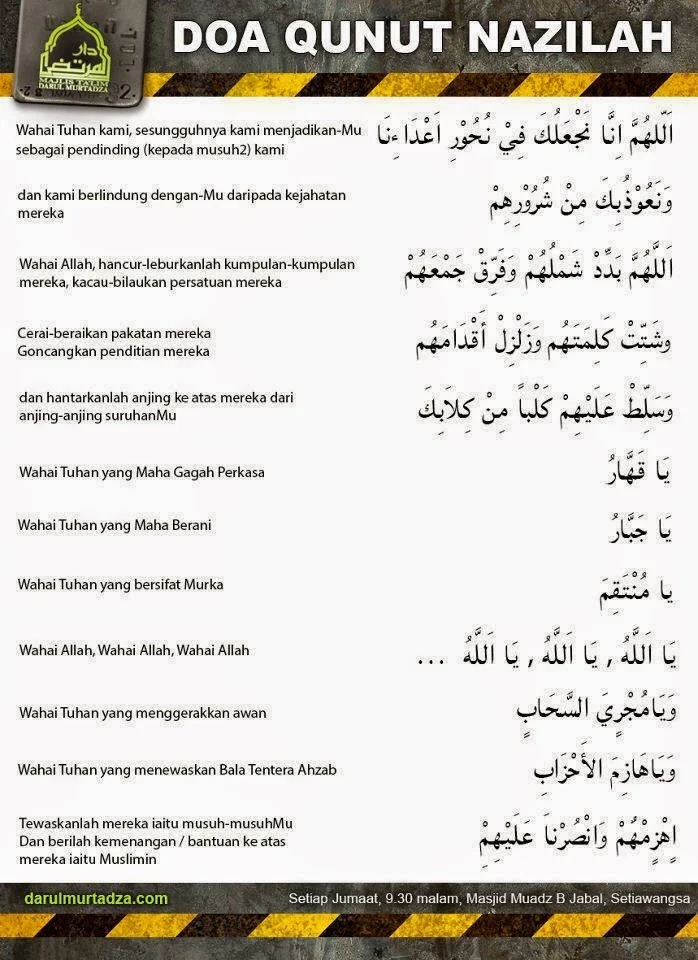 دار
المرتضى
MAJLIS TA'LIM
DARUL MURTADZA
DOA QUNUT NAZILAH
Wahai Tuhan kami, sesungguhnya kami menjadikan-Mu
sebagai pendinding (kepada musuh2) kami
اَللّهُمَّ اِنَّا نَجْعَلُكَ فِيْ نُحُوْرِ اَعْدَاءِنَا
dan kami berlindung dengan-Mu daripada kejahatan
mereka
وَنَعُوْذُبِكَ مِنْ شُرُوْرِهِمْ
Wahai Allah, hancur-leburkanlah kumpulan-kumpulan
mereka, kacau-bilaukan persatuan mereka
اَللَّهُمَّ بَدِّدْ شَمْلُهُمْ وَفَرِّقْ جَمْعَهُمْ
Cerai-beraikan pakatan mereka
Goncangkan penditian mereka
وشَتِّتْ كَلِمَتَهُم وَزَلْزِلْ أَقْدَامَهُم
dan hantarkanlah anjing ke atas mereka dari
anjing-anjing suruhanMu
وَسَلِّطْ عَلَيْهِمْ كَلْباً مِنْ كِلاَبِكَ
Wahai Tuhan yang Maha Gagah Perkasa
يَا قَهَّارُ
Wahai Tuhan yang Maha Berani
يَا جَبَّارُ
Wahai Tuhan yang bersifat Murka
يا مُنْتَقِمَ
Wahai Allah, Wahai Allah, Wahai Allah
يَا اَللَّهُ , يَا اَللَّهُ , يَا اَللَّهُ ...
Wahai Tuhan yang menggerakkan awan
وَيَامُجْرِيَ السَّحَابِ
Wahai Tuhan yang menewaskan Bala Tentera Ahzab
وَيَاهَازِمَ الأَحْزَابِ
Tewaskanlah mereka iaitu musuh-musuhMu
Dan berilah kemenangan / bantuan ke atas
mereka iaitu Muslimin
اِهْزِمْهُمْ وَانْصُرْناَ عَلَيْهِمْ
darulmurtadza.com
Setiap Jumaat, 9.30 malam, Masjid Muadz B Jabal, Setiawangsa